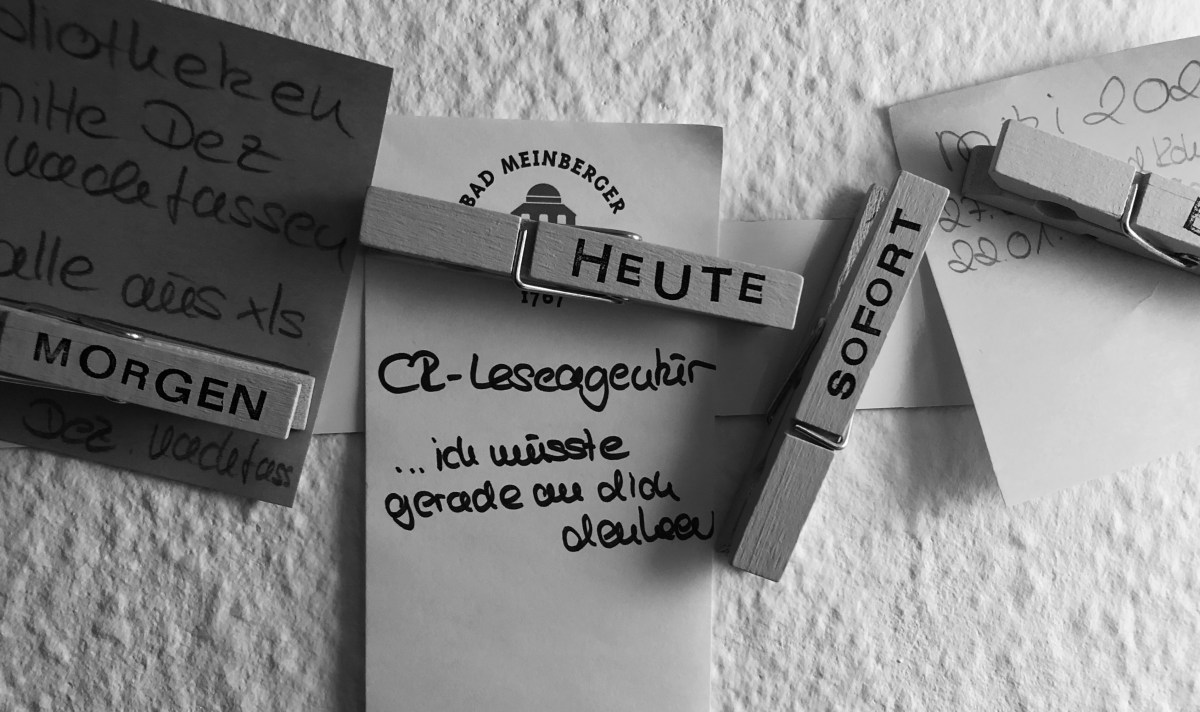 bliotheken
mitte Dez
nachfassen
alle aus xls
MORGEN
Dez. nachfass
BAD MEINBERGER
HEUTE
1767
CR-Leseagentur
...ich müsste
gerade an dich
denken
SOFORT
202
27.
22.01.